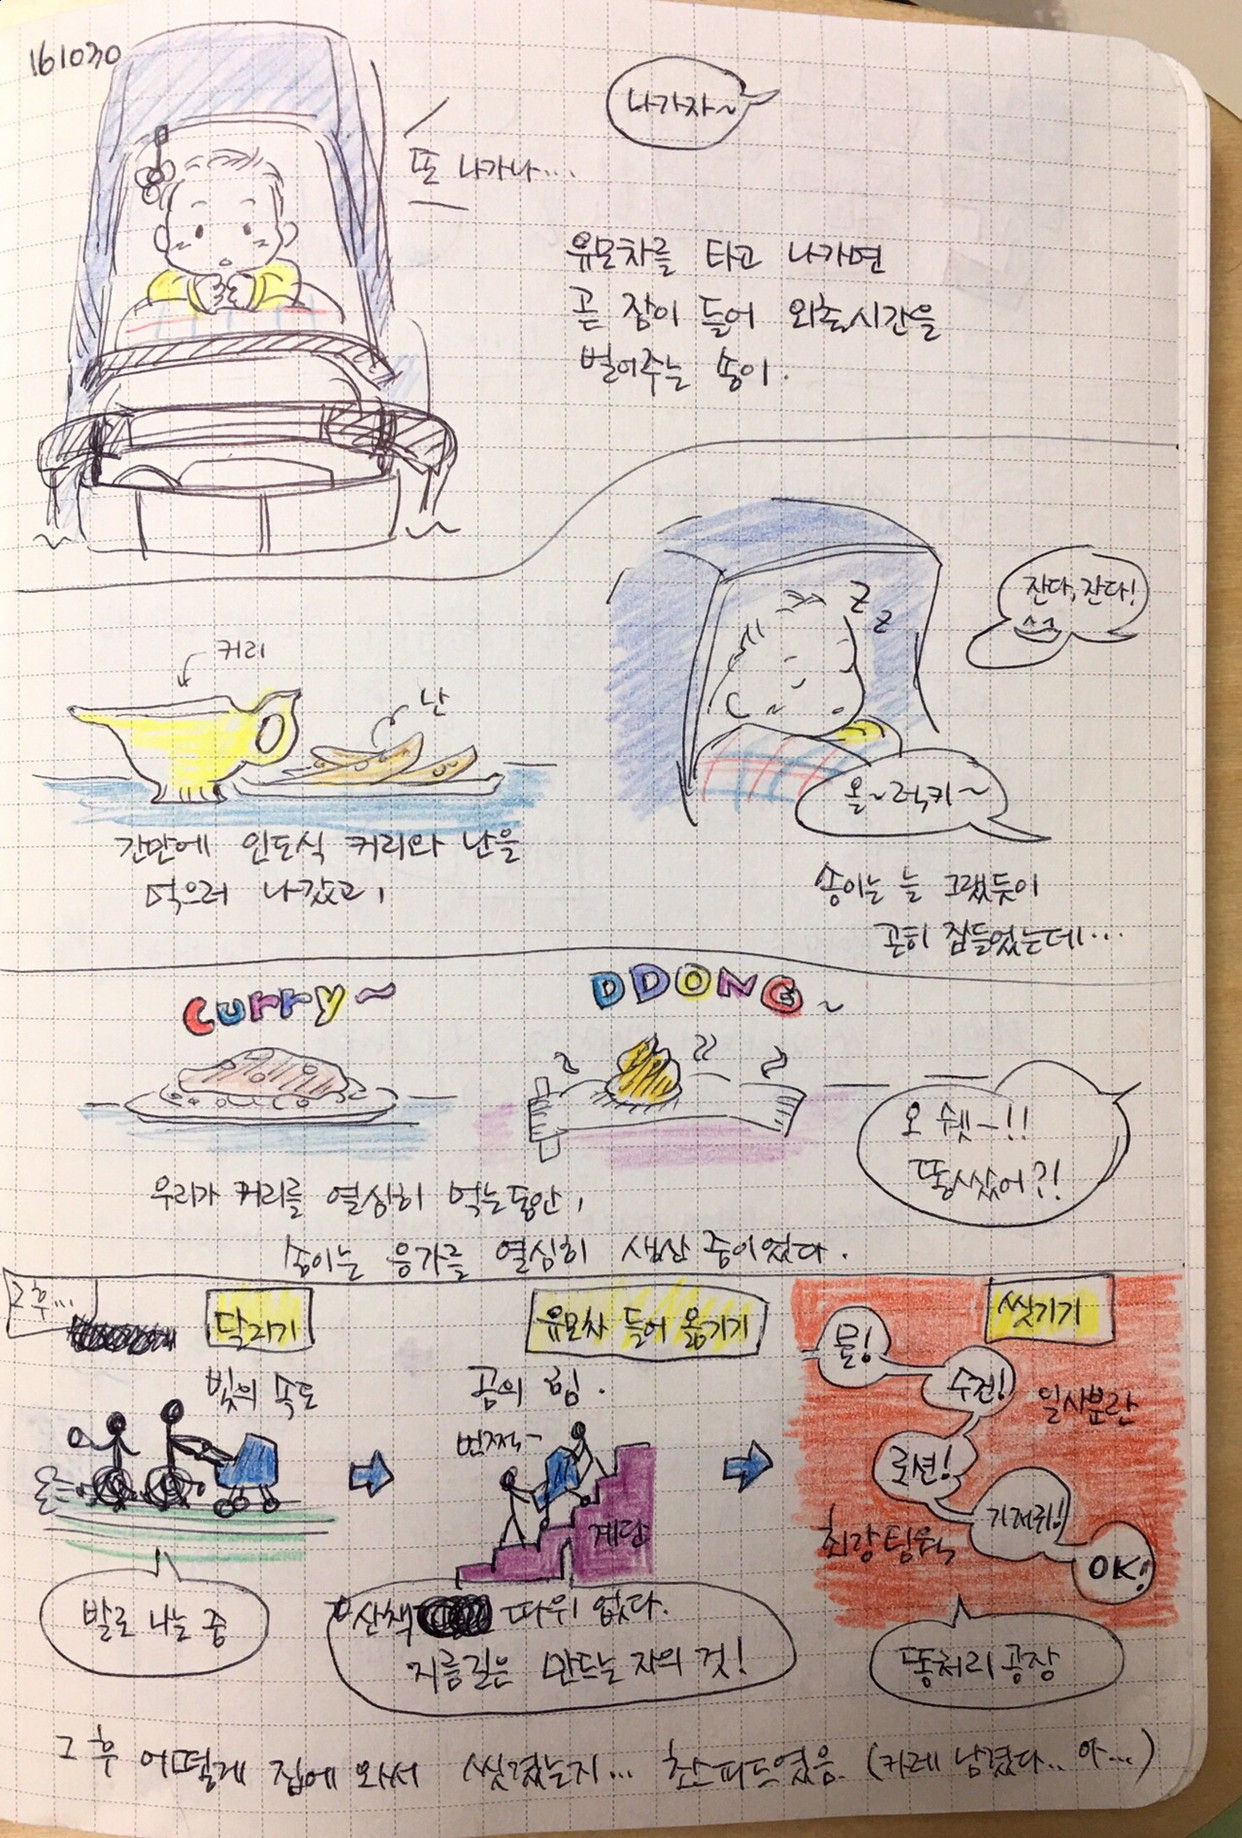 161030
나가자~
또 나가나....
유모차를 타고 나가면
곧 잠이 들어 외출시간을
벌어주는 송이.
잔다, 잔다!
커리
난
Z
Z
올~럭키~
간만에 인도식 커리와 난을
먹으러 나갔고,
송이는 늘 그랬듯이
곤히 잠들었는데...
CUrry~
DDONG~
오 쉣~!!
똥쌌어?!
우리가 커리를 열심히 먹는동안,
송이는 응가를 열심히 생산 중이었다.
그 후...
달리기
빛의 속도
발로 나는 중
유모차 들어 옮기기
곰의 힘.
번쩍~
계단
산책 따위 없다.
지름길은 만드는 자의 것!
씻기기
물!
수건!
일사분란
로션!
기저귀!
최강팀웍
OK!
똥처리 공장
그 후 어떻게 집에 와서 씻겼는지... 초스피드였음. (카레 남겼다... 아...)